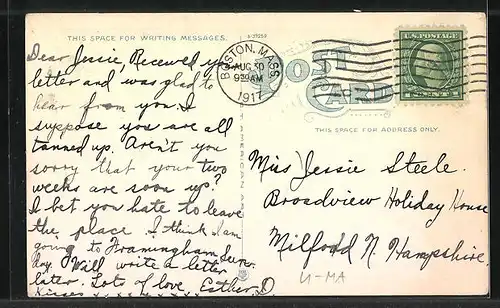 THIS SPACE FOR WRITING MESSAGES.
Dear Jessie, Received your
letter and was glad to
hear from you. I
suppose you are all
tanned up. Aren't you
sorry that your two
weeks are soon up?
I bet you hate to leave
the place. I think I am
going to Framingham Sun-
day. I will write a letter
later. Lots of love. Esther, D
Kisses x x x x x x x x x
BOSTON, MASS.
AUG 30
9 30AM
1917
POST
CARD
U.S. POSTAGE
THIS SPACE FOR ADDRESS ONLY.
Miss Jessie Steele.
Broadview Holiday House
Milford N. Hampshire.
U-MA